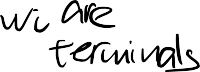 wi are
terminals